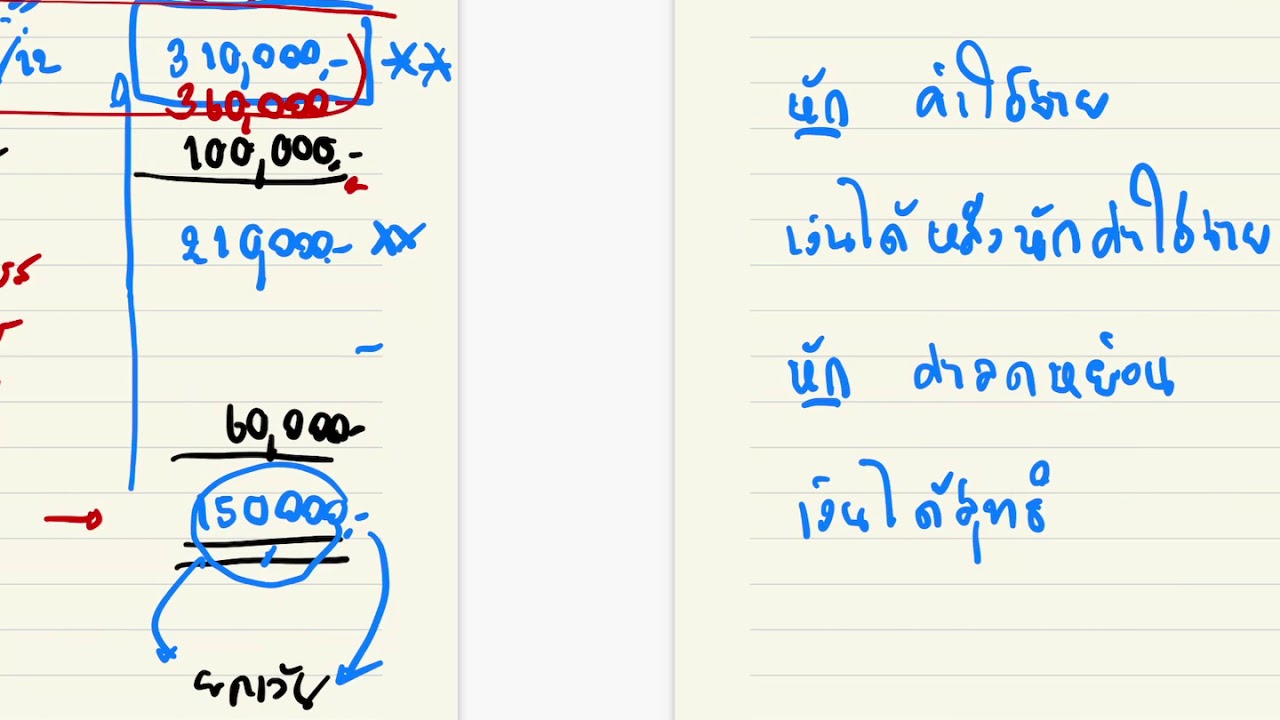 310,000.- **
360,000.-
100,000.-
210,000.- **
-
60,000.-
150,000.-
ยกเว้น
หัก ค่าใช้จ่าย
เงินได้หลังหักค่าใช้จ่าย
หัก ค่าลดหย่อน
เงินได้สุทธิ